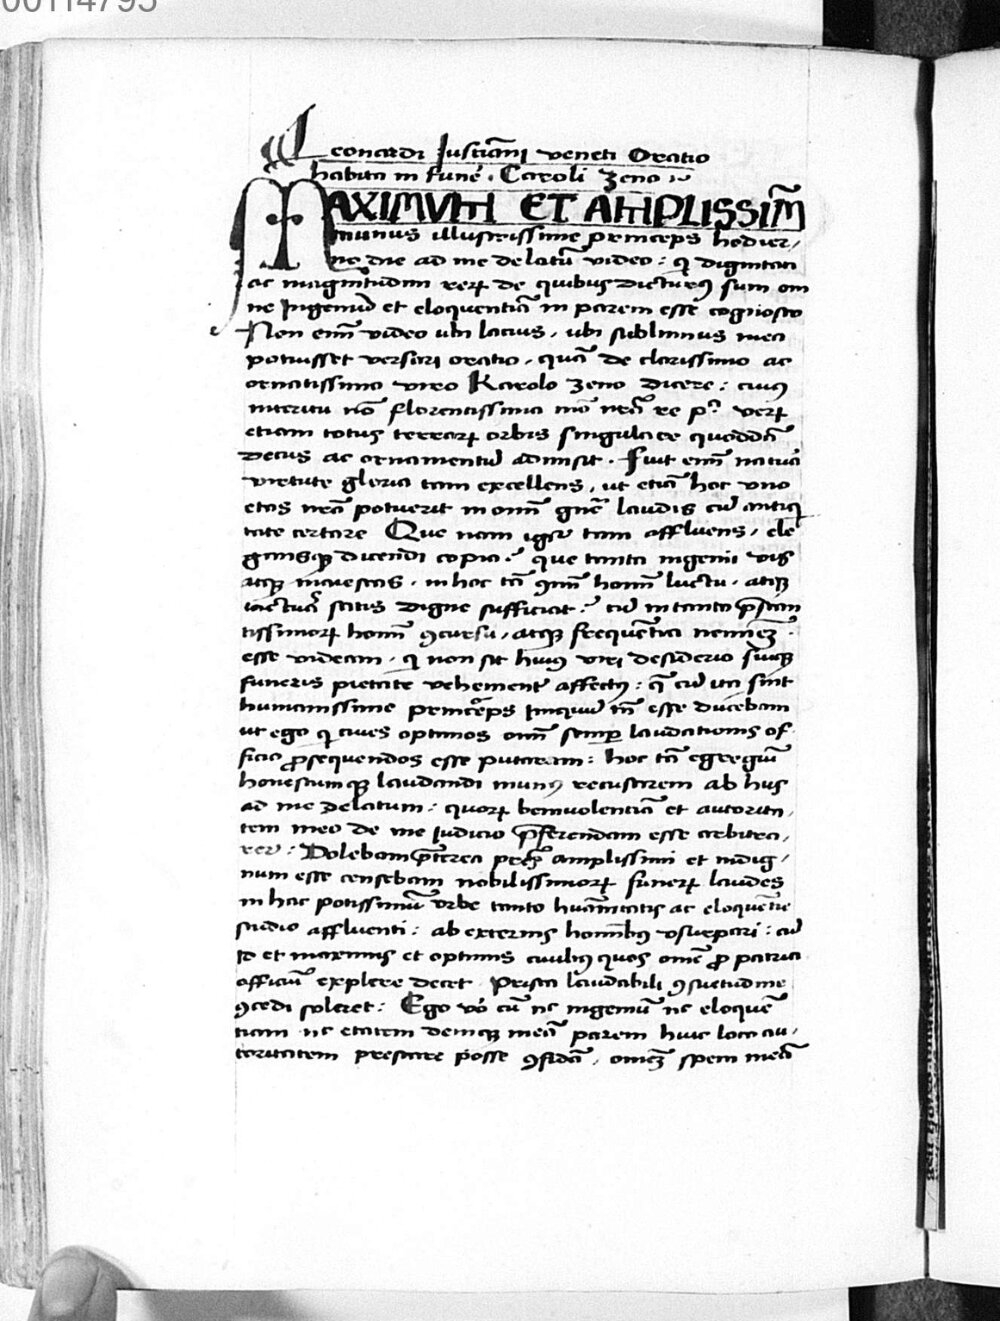 00114795
Leonardi Iustiãni veneti Oratio
habita in funeꝰ. Caroli Zeno
MAXIMVM ET AMPLISSIM̃
munus illustrissime princeps hodier,
no die ad me delatũ video: qꝫ dignitati
ac magnitudini rerꝝ de quibus dicturꝰ sum om
ne Ingeniũ et eloquentiã in parem esse cognosco
Non enĩ video ubi latius, ubi sublimius mea
potuisset versari oratio, quã de clarissimo ac
ornatissimo viro Karolo Zeno dicere: cuiꝰ
interitu nõ florentissima mõ nrã re p. verꝝ
etiam totus terrarꝝ orbis singulare quoddã
decus ac ornamentũ admisit. Fuit enĩ natura
virtute gloria tam excellens, ut etiã hoc uno
etas nrã potuerit in omni gñe laudis cũ antiqꝫ
tate certare Que nam igr tam affluens, ele
gansqꝫ dicendi copia? que tanta ingenii vis
atqꝫ maiestas, in hoc tã õmĩ homĩ luctu, atqꝫ
iacturã satis digne sufficiat? cũ in tanto p̃stan
tissimorꝝ homĩ ꝯcursu, atqꝫ frequẽtia neminẽ
esse videam, qꝫ non sit huius viri desiderio suiqꝫ
funeris pietate vehementꝰ affectꝰ: q̃ cũ ita sint
humanissime princeps iniquũ tñ esse ducebam
ut ego qꝫ ciues optimos omĩ semꝑ laudationis of
ficio ꝓsequendos esse putaram: hoc tã egregiũ
honestumqꝫ laudandi munꝰ recusarem ab his
ad me delatum: quorꝝ beniuolentiã et autorita,
tem meo de me iudicio p̃ferendam esse arbitra,
rer: Dolebam p̃terea pr̃es amplissimi et indig,
num esse censebam nobilissimorꝝ funerꝝ laudes
in hac potissimũ urbe tanto huãnitatis ac eloquẽtie
studio affluenti: ab externis hominibꝰ usurpari: cũ
id et maximis et optimis ciuibꝰ quos omẽ ꝓ patria
officiũ explere decet. Prisca laudabili ꝯsuetudine
ꝯcedi soleret: Ego vo cũ nc ingeniũ nc eloquẽ
tiam nc etatem deniqꝫ meã parem huic loco au,
toritatem prestare posse ꝯfidã, omẽ spem meã